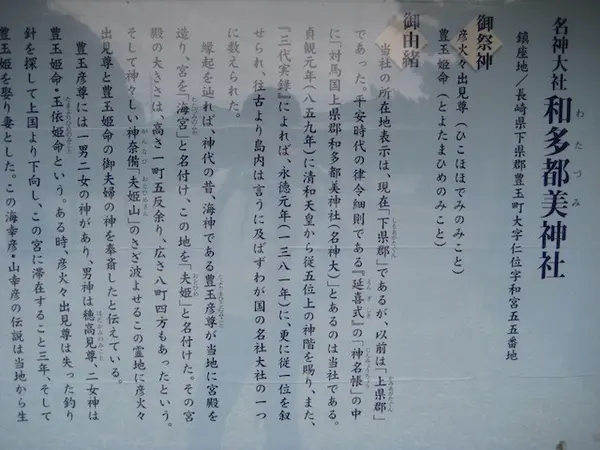 名神大社 和多都美神社
わたつみ
鎮座地／長崎県下県郡豊玉町大字仁位字和宮五五番地
御祭神
彦火々出見尊（ひこほほでみのみこと）
豊玉姫命（とよたまひめのみこと）
御由緒
当社の所在地表示は、現在「下県郡」であるが、以前は「上県郡」
であった。平安時代の律令細則である『延喜式』の「神名帳」の中
に「対馬国上県郡和多都美神社（名神大）」とあるのは当社である。
貞観元年（八五九年）に清和天皇から従五位上の神階を賜り、また、
『三代実録』によれば、永徳元年（一三八一年）に、更に従一位を叙
せられ、往古より島内は言うに及ばずわが国の名社大社の一つ
に数えられた。
縁起を辿れば、神代の昔、海神である豊玉彦尊が当地に宮殿を
造り、宮を「海宮」と名付け、この地を「夫姫」と名付けた。その宮
殿の大きさは、高さ一町五反余り、広さ八町四方もあったという。
そして神々しい神奈備「夫姫山」のさざ波よせるこの霊地に彦火々
出見尊と豊玉姫命の御夫婦の神を奉斎したと伝えている。
豊玉彦尊には一男二女の神があり、男神は穂高見尊、二女神は
豊玉姫命・玉依姫命という。ある時、彦火々出見尊は失った釣り
針を探して上国より下向し、この宮に滞在すること三年、そして
豊玉姫を娶り妻とした。この海幸彦・山幸彦の伝説は当地から生